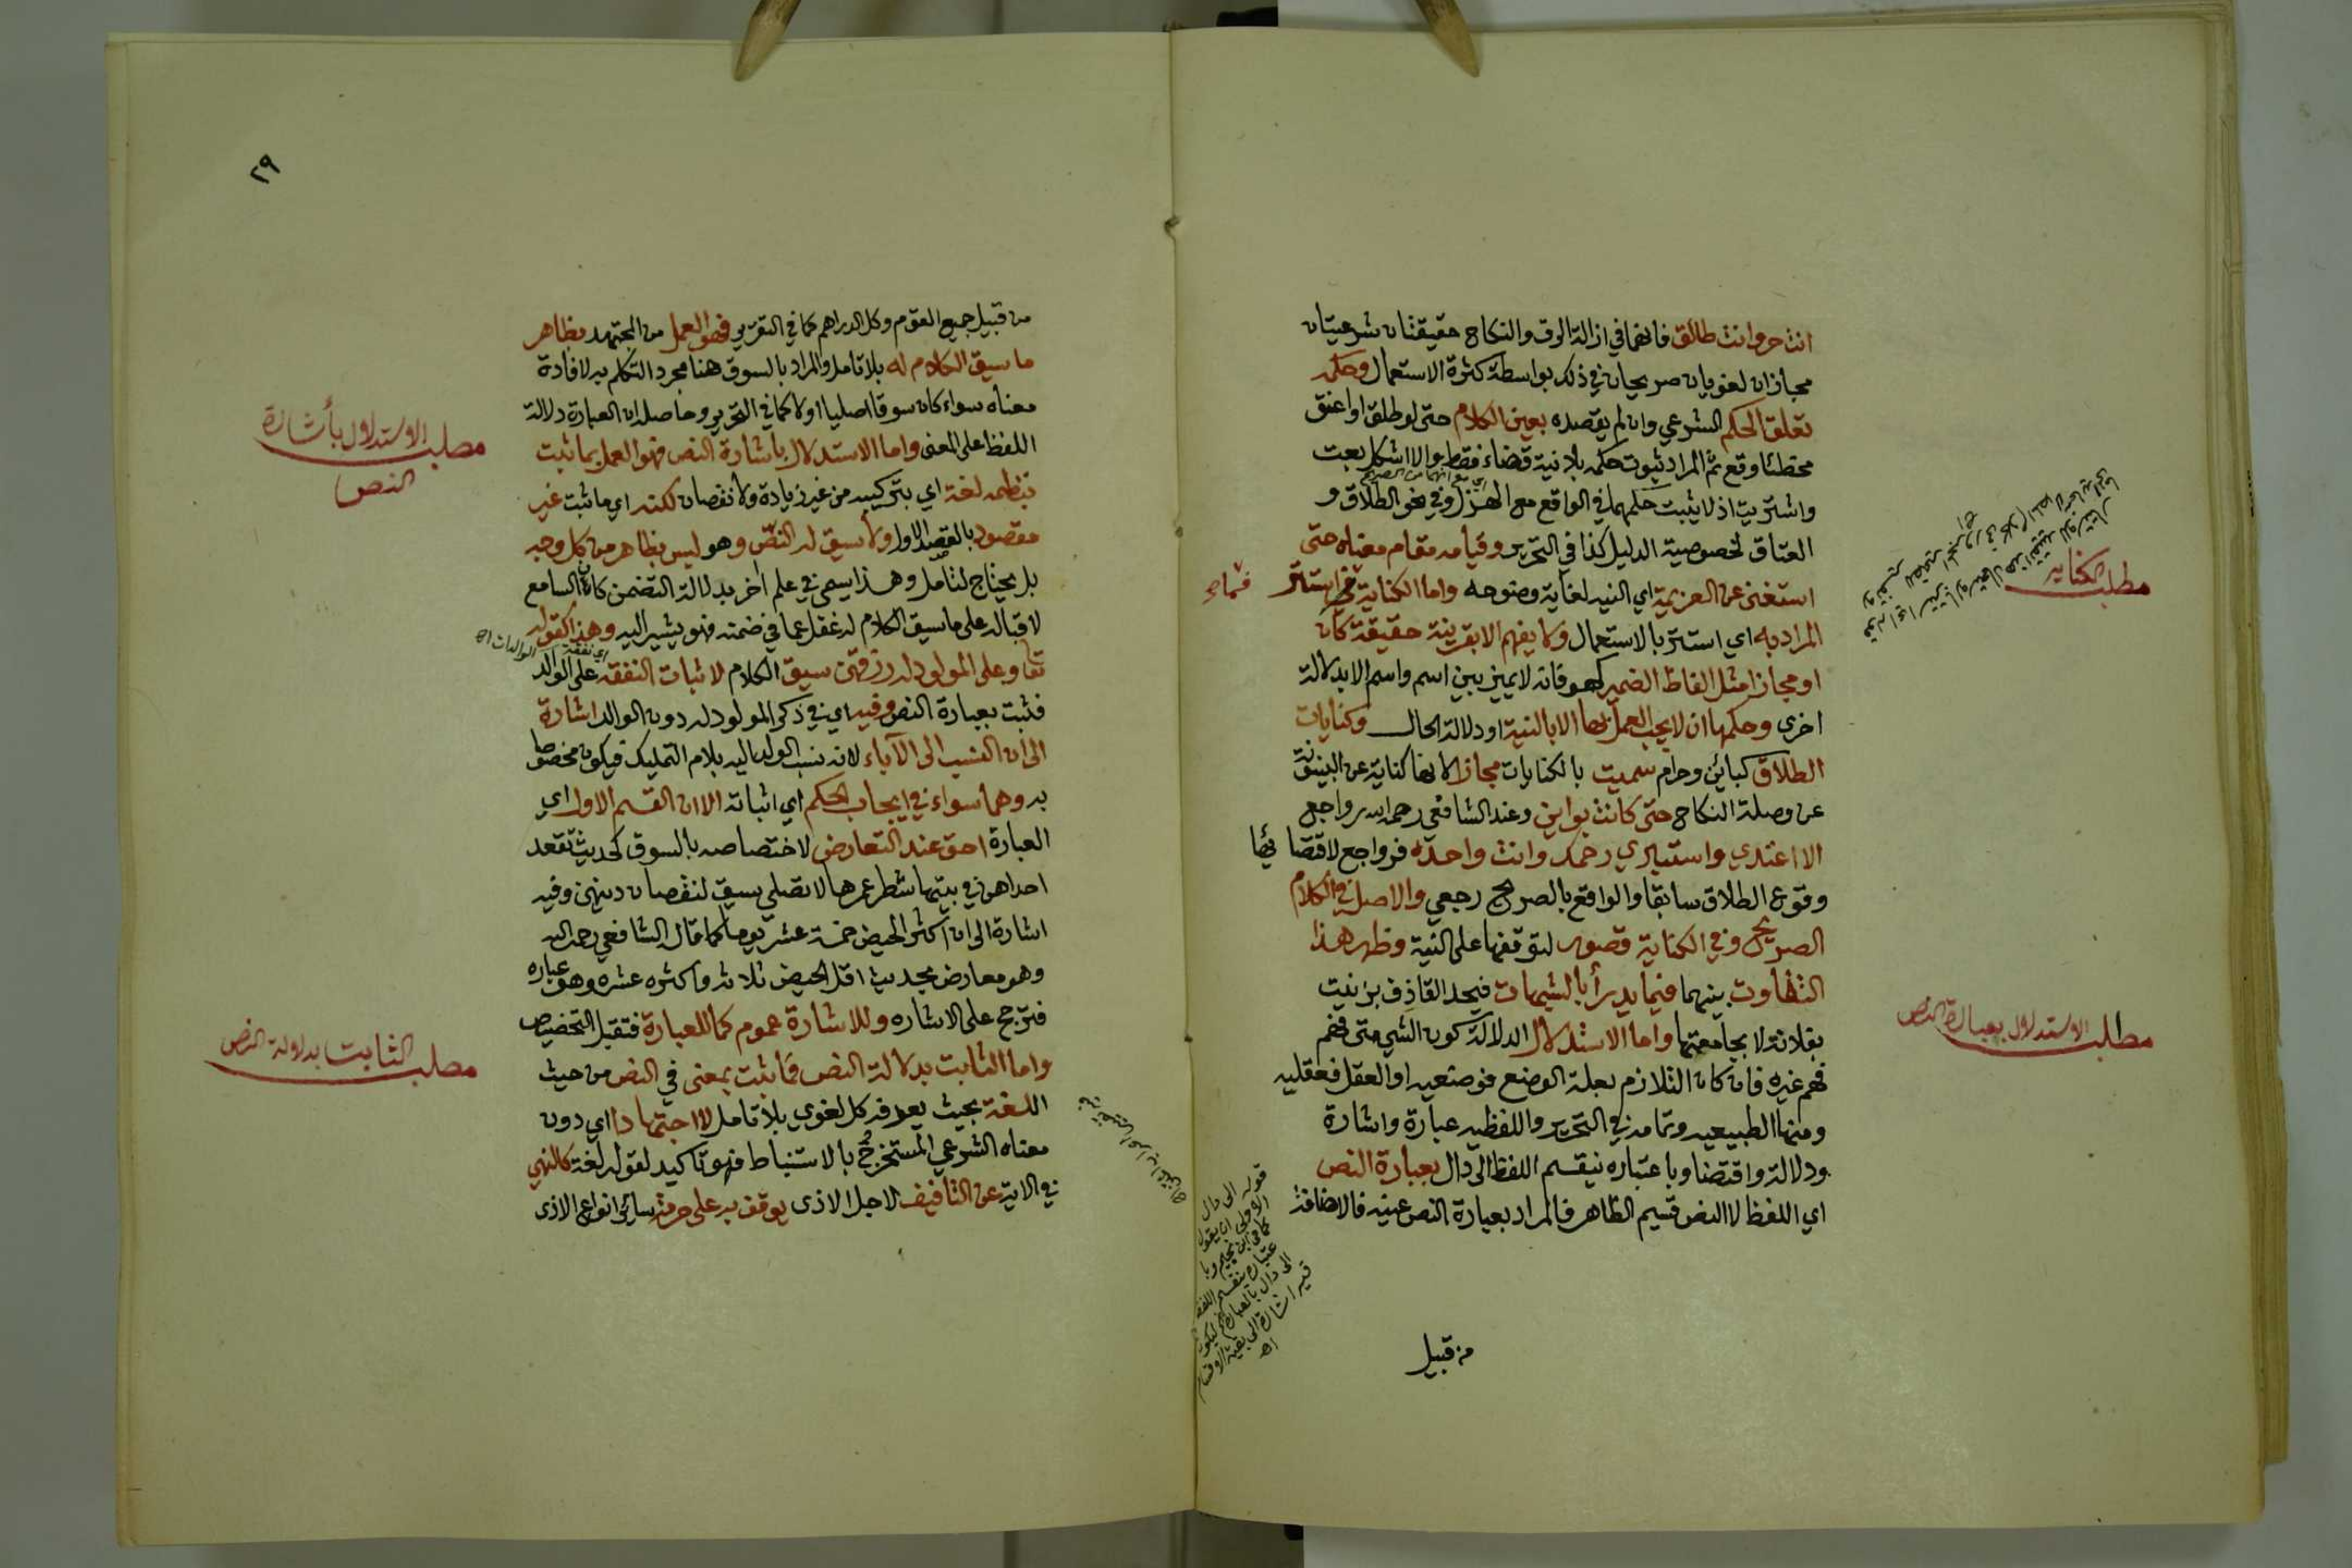 انت حر وانت طالق فانهما في ازالة الرق والنكاح حقيقتان شرعيتان
مجازان لغويان صريحان في ذلك بواسطة كثرة الاستعمال وحكمه
تعلق الحكم الشرعي وان لم يقصده بعين الكلام حتى لو طلق او اعتق
مخطئا وقع ثم المراد ثبوت حكمه بلا نية قضاء فقط والا اشكل بعت
واشتريت اذ لا يثبت حكمهما في الواقع مع الهزل وفي نحو الطلاق و
اي مع انهما من الصريح
العتاق لخصوصية الدليل كذا في التحرير وقيامه مقام معناه حتى
استغنى عن العزيمة اي النيه لغاية وضوحه واما الكناية فما استتر
فما صح
المراد به اي استتر بالاستعمال ولا يفهم الا بقرينة حقيقة كان
او مجازا مثل الفاظ الضمير كهو فانه لا يميز بين اسم واسم الا بدلالة
اخرى وحكمها ان لا يجب العمل بها الا بالنية او دلالة الحال وكنايات
الطلاق كبائن وحرام سميت بالكنايات مجازا لانها كناية عن البينونة
عن وصلة النكاح حتى كانت بواين وعند الشافعي رحمه الله رواجع
الا اعتدي واستبرئي رحمك وانت واحدة فرواجع لاقتضائها
وقوع الطلاق سابقا والواقع بالصريح رجعي والاصل في الكلام
الصريح وفي الكناية قصور لتوقفها على النية وظهر هذا
التفاوت بينهما فيما يدرأ بالشبهات فيحد القاذف بزنيت
بفلانة لا بجامعتها واما الاستدلال الدلالة كون الشي متى فهم
فهم غيره فان كان التلازم بعلة الوضع فوضعيه او العقل فعقليه
ومنها الطبيعيه وتمامه في التحرير واللفظيه عبارة واشارة
ودلالة واقتضا وباعتباره ينقسم اللفظ الى دال بعبارة النص
اي اللفظ لا النص قسيم الظاهر فالمراد بعبارة النص عينه فالاضافة
من قبيل
مطلب الكنايه
مطلب الاستدلال بعبارة النص
قوله الى دال
الاولى ان يقول
كما في ابن نجيم وبا
عتباره ينقسم اللفظ
الى دال بالعبارة ليكون
فيه اشارة الى بقية الاقسام
اهـ
٢٩
من قبيل جميع القوم وكل الدراهم كما في التقرير فهو العمل من المجتهد بظاهر
ما سيق الكلام له بلا تامل والمراد بالسوق هنا مجرد التكلم به لافادة
معناه سواء كان سوقا اصليا او لا كما في التحرير وحاصله ان العبارة دلالة
اللفظ على المعنى واما الاستدلال باشارة النص فهو العمل بما ثبت
بنظمه لغة اي بتركيبه من غير زيادة ولا نقصان لكنه اي ما ثبت غير
مقصود بالقصد الاول ولا سيق له النص وهو ليس بظاهر من كل وجه
بل يحتاج لتامل وهذا يسمى في علم اخر بدلالة التضمن كان السامع
لاقباله على ما سيق الكلام له غفل عما في ضمنه فهو يشير اليه وهذا كقوله
اي نفقة الوالدات اهـ
تعا وعلى المولود له رزقهن سيق الكلام لاثبات النفقة على الوالد
فثبت بعبارة النص وفيه اي في ذكر المولود له دون الوالد اشارة
الى ان النسب الى الآباء لانه نسب الولد اليه بلام التمليك فيكون مخصوصا
به وهما سواء في ايجاب الحكم اي اثباته الا ان القسم الاول اي
العبارة احق عند التعارض لاختصاصه بالسوق كحديث تقعد
احداهن في بيتها شطر عمرها لا تصلي سيق لنقصان دينهن وفيه
اشارة الى ان اكثر الحيض خمسة عشر يوما كما قال الشافعي رحمه الله
وهو معارض بحديث اقل الحيض ثلاثه واكثره عشره وهو عباره
فترجح على الاشاره وللاشارة عموم كما للعبارة فتقبل التخصيص
واما الثابت بدلالة النص فما ثبت بمعنى في النص من حيث
اللغة بحيث يعرفه كل لغوي بلا تامل لا اجتهادا اي دون
معناه الشرعي المستخرج بالاستنباط فهو تاكيد لقوله لغة كالنهي
في الاية عن التافيف لاجل الاذى يوقف به على حرمة سائر انواع الاذى
مطلب الاستدلال بأشارة
النص
مطلب الثابت بدلالة النص